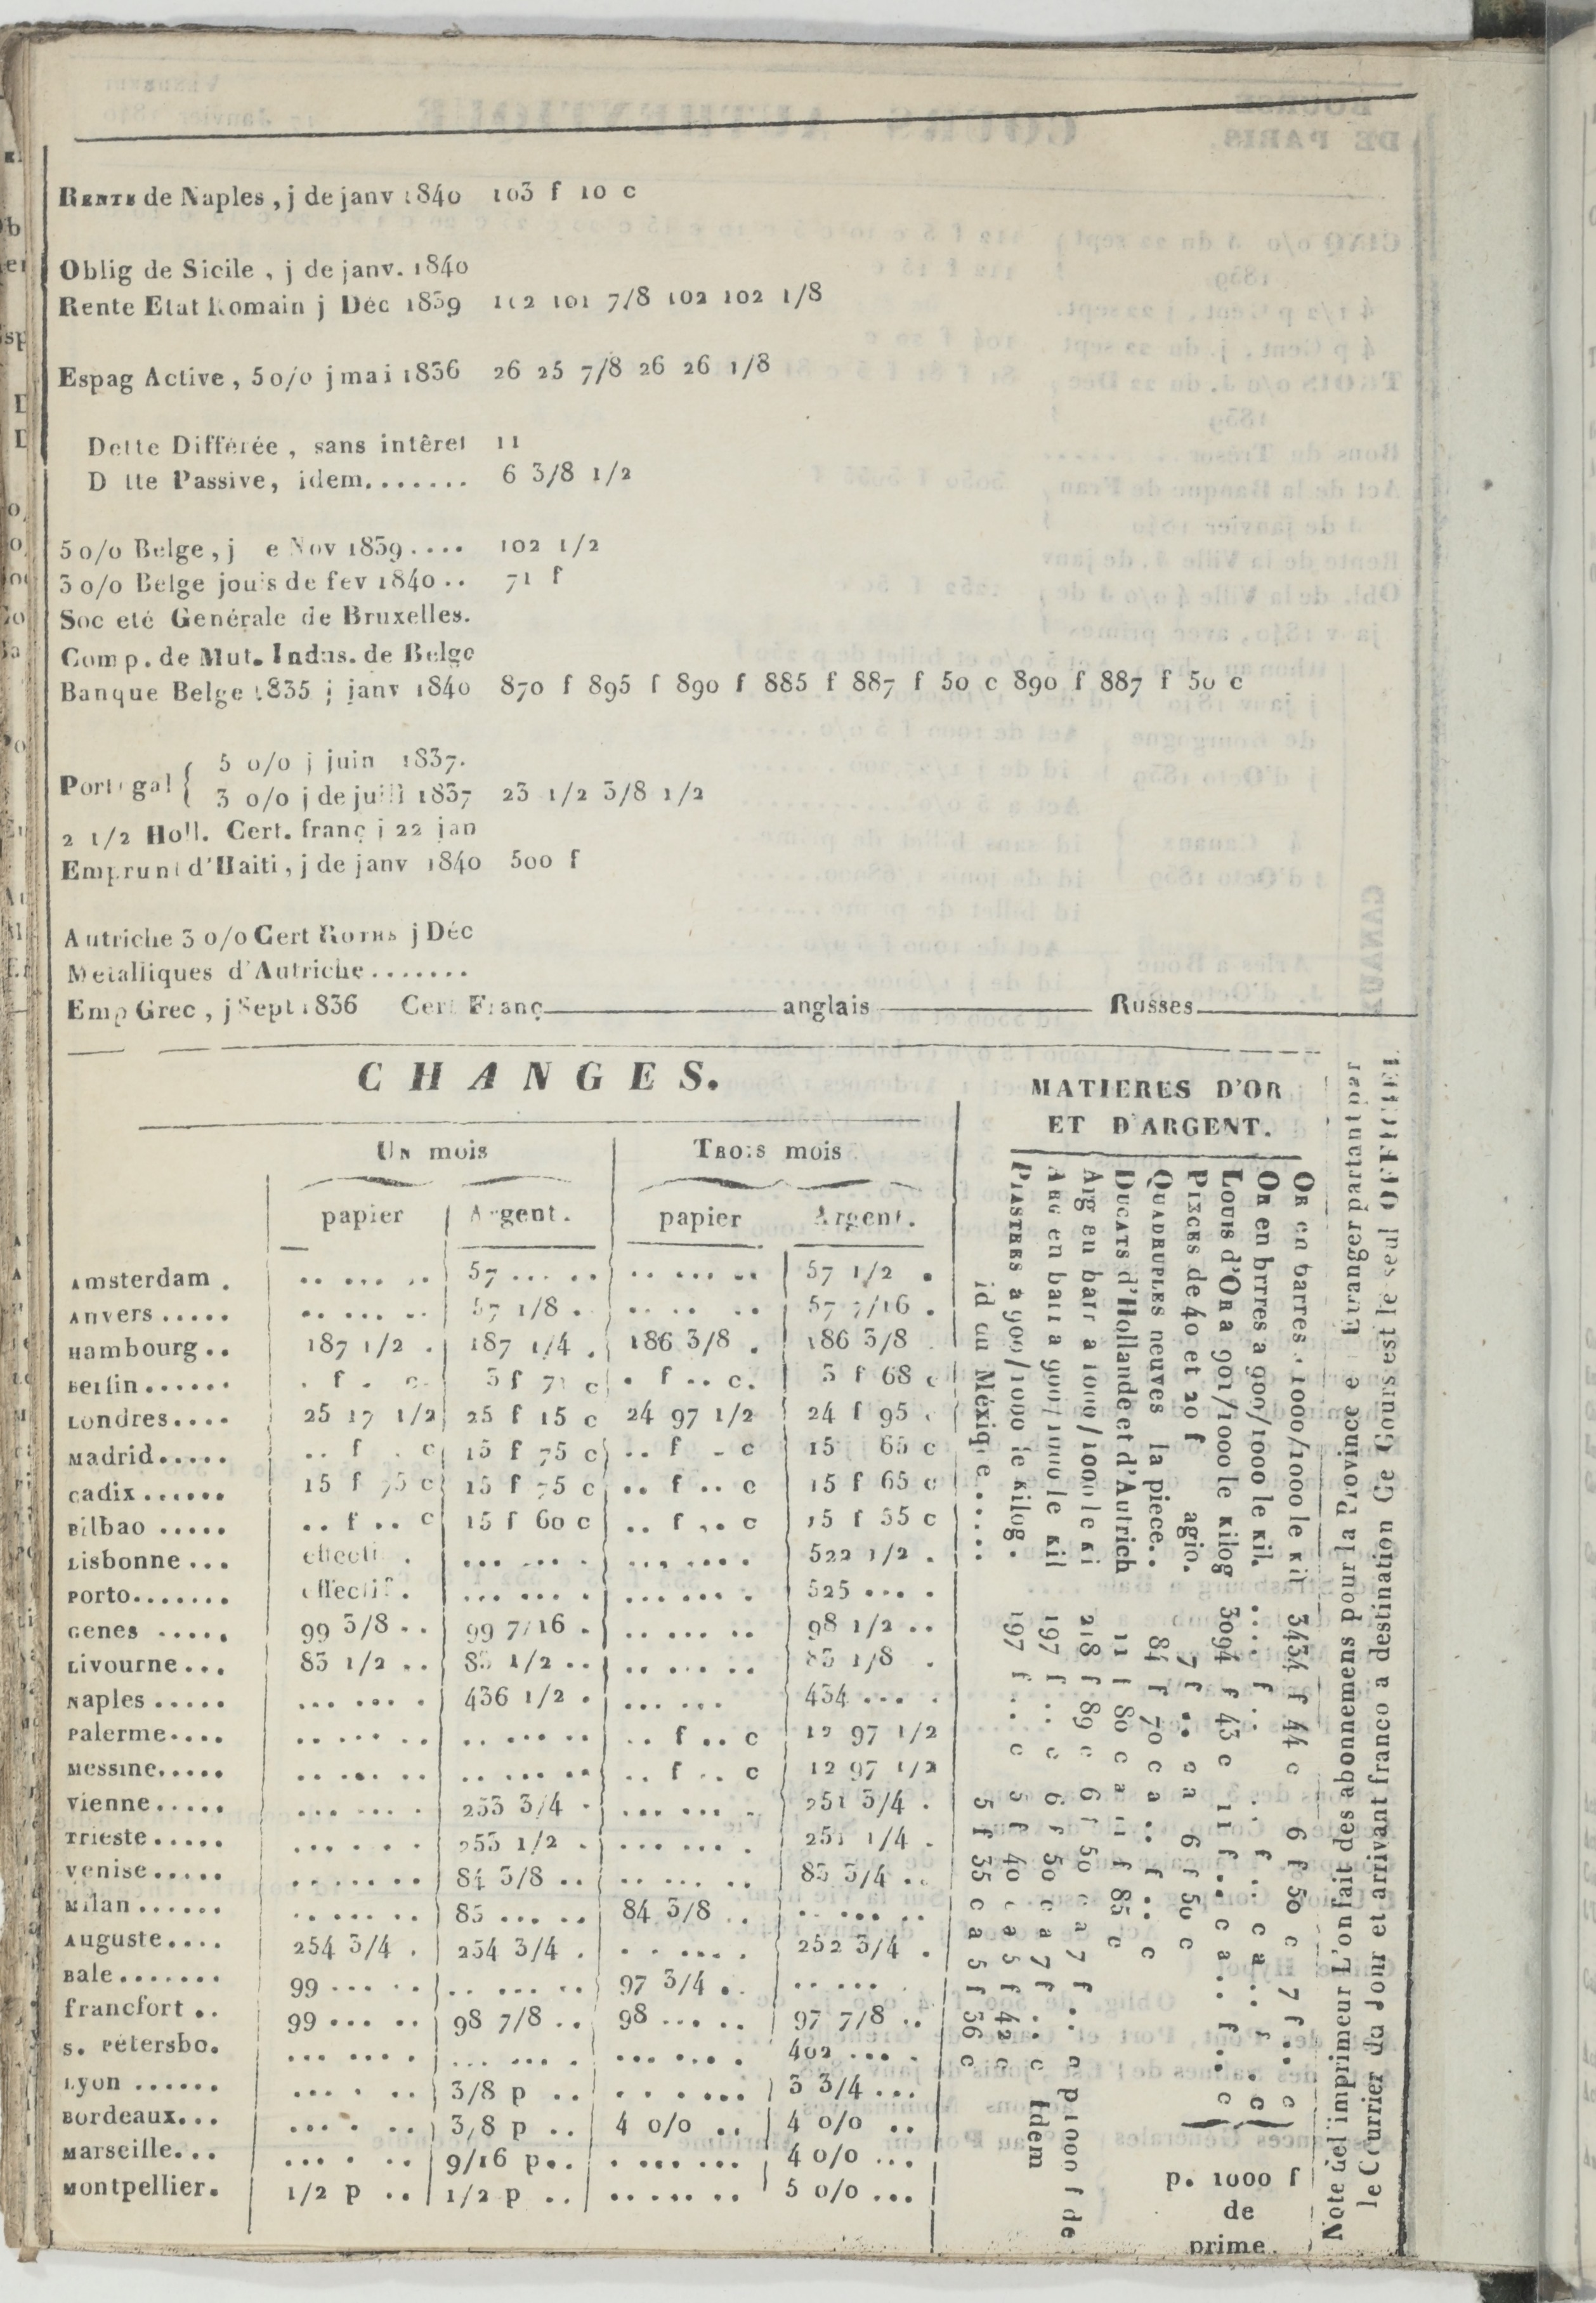 RENTE de Naples, j de janv 1840 103 f 10 c
Oblig de Sicile, j de janv. 1840
Rente Etat Romain j Déc 1839 102 101 7/8 102 102 1/8
Espag Active, 5 0/0 j mai 1836 26 25 7/8 26 26 1/8
Dette Différée, sans intêret 11
D tte Passive, idem....... 6 3/8 1/2
5 0/0 Belge, j e Nov 1839.... 102 1/2
3 0/0 Belge jouis de fev 1840.. 71 f
Soc eté Genérale de Bruxelles.
Comp. de Mut. Indus. de Belge
Banque Belge 1835 j janv 1840 870 f 895 f 890 f 885 f 887 f 50 c 890 f 887 f 50 c
Portugal { 5 0/0 j juin 1837.
3 0/0 j de juill 1837 23 1/2 3/8 1/2
2 1/2 Holl. Cert. franç j 22 jan
Emprunt d'Haiti, j de janv 1840 500 f
Autriche 3 0/0 Cert ROTHS j Déc
Metalliques d'Autriche.......
Emp Grec, j Sept 1836 Cert Franç anglais Russes
CHANGES.
UN mois TROIS mois
papier Argent. papier Argent.
Amsterdam . .. ... .. 57 ... .. .. ... .. 57 1/2 .
Anvers ..... .. ... .. 57 1/8 . .. .. .. 57 7/16 .
Hambourg .. 187 1/2 . 187 1/4 . 186 3/8 . 186 3/8 .
Berlin ...... . f . c. 3 f 71 c . f .. c. 3 f 68 c
Londres.... 25 17 1/2 25 f 15 c 24 97 1/2 24 f 95 .
Madrid..... .. f . c 15 f 75 c .. f . c 15 65 c
Cadix ...... 15 f 75 c 15 f 75 c .. f .. c 15 f 65 c
Bilbao ..... .. f .. c 15 f 60 c .. f .. c 15 f 55 c
Lisbonne ... effecti . ... ... . ... .... 522 1/2 .
Porto....... effectif . ... ... . ... ... . 525 ... .
Genes ..... 99 3/8 .. 99 7/16 . .. ... .. 98 1/2 ..
Livourne... 83 1/2 .. 83 1/2 .. .. ... .. 83 1/8 .
Naples ..... ... ... . 436 1/2 . ... ... 434 ... .
Palerme.... .. ... .. .. ... .. .. f .. c 12 97 1/2
Messine..... .. ... .. .. ... .. .. f .. c 12 97 1/2
Vienne..... ... ... . 253 3/4 . ... ... . 251 3/4 .
Trieste ..... ... ... . 253 1/2 . ... ... . 251 1/4 .
Venise ..... .. ... .. 84 3/8 .. .. ... .. 83 3/4 ..
Milan ...... .. ... .. 85 ... .. 84 3/8 .. .. ... ..
Auguste.... 254 3/4 . 254 3/4 . . ... ... 252 3/4 .
Bale ....... 99 ... .. .. ... .. 97 3/4 . .. ...
francfort .. 99 ... .. 98 7/8 .. 98 ... .. 97 7/8 ..
S. Pétersbo. ... ... . ... ... . ... ... . 402 ... .
Lyon ...... ... . .. 3/8 p .. . . .... 3 3/4 ...
Bordeaux... ... . .. 3/8 p .. 4 0/0 .. 4 0/0 ..
Marseille... ... . .. 9/16 p.. . ... ... 4 0/0 ...
Montpellier. 1/2 p .. 1/2 p .. ..... .. 5 0/0 ...
MATIERES D'OR
ET D'ARGENT.
OR en barres a 1000/1000 le kil 3434 f 44 c 6 f 50 c 7 f .. c
OR en brrres a 900/1000 le kil. .... f .. . f .. c a .. f .. c
LOUIS d'OR a 901/1000 le kilog 3094 f 43 c 11 f .. c a .. f .. c
PIECES de 40 et 20 f agio. 7 f .. c a 6 f 50 c
QUADRUPLES neuves la piece.. 84 f 70 c a .. f .. c
DUCATS d'Hollande et d'Autrich 11 f 80 c a 11 f 85 c
Arg en barr a 1000/1000 le ki 218 f 89 c 6 f 50 c a 7 f .. c p 1000 f de
ARG en barr a 900/1000 le kil 197 f .. c 6 f 50 c a 7 f .. c Idem
PIASTRES a 900/1000 le kilog. 197 f .. c 5 f 40 c a 5 f 42 c
id du Méxique..... 5 f 35 c a 5 f 36 c
p. 1000 f
de
prime.
Note del imprimeur L'on fait des abonnemens pour la Province e Etranger partant par
le Currier du Jour et arrivant franco a destination Ce Cours est le seul OFFICIEL